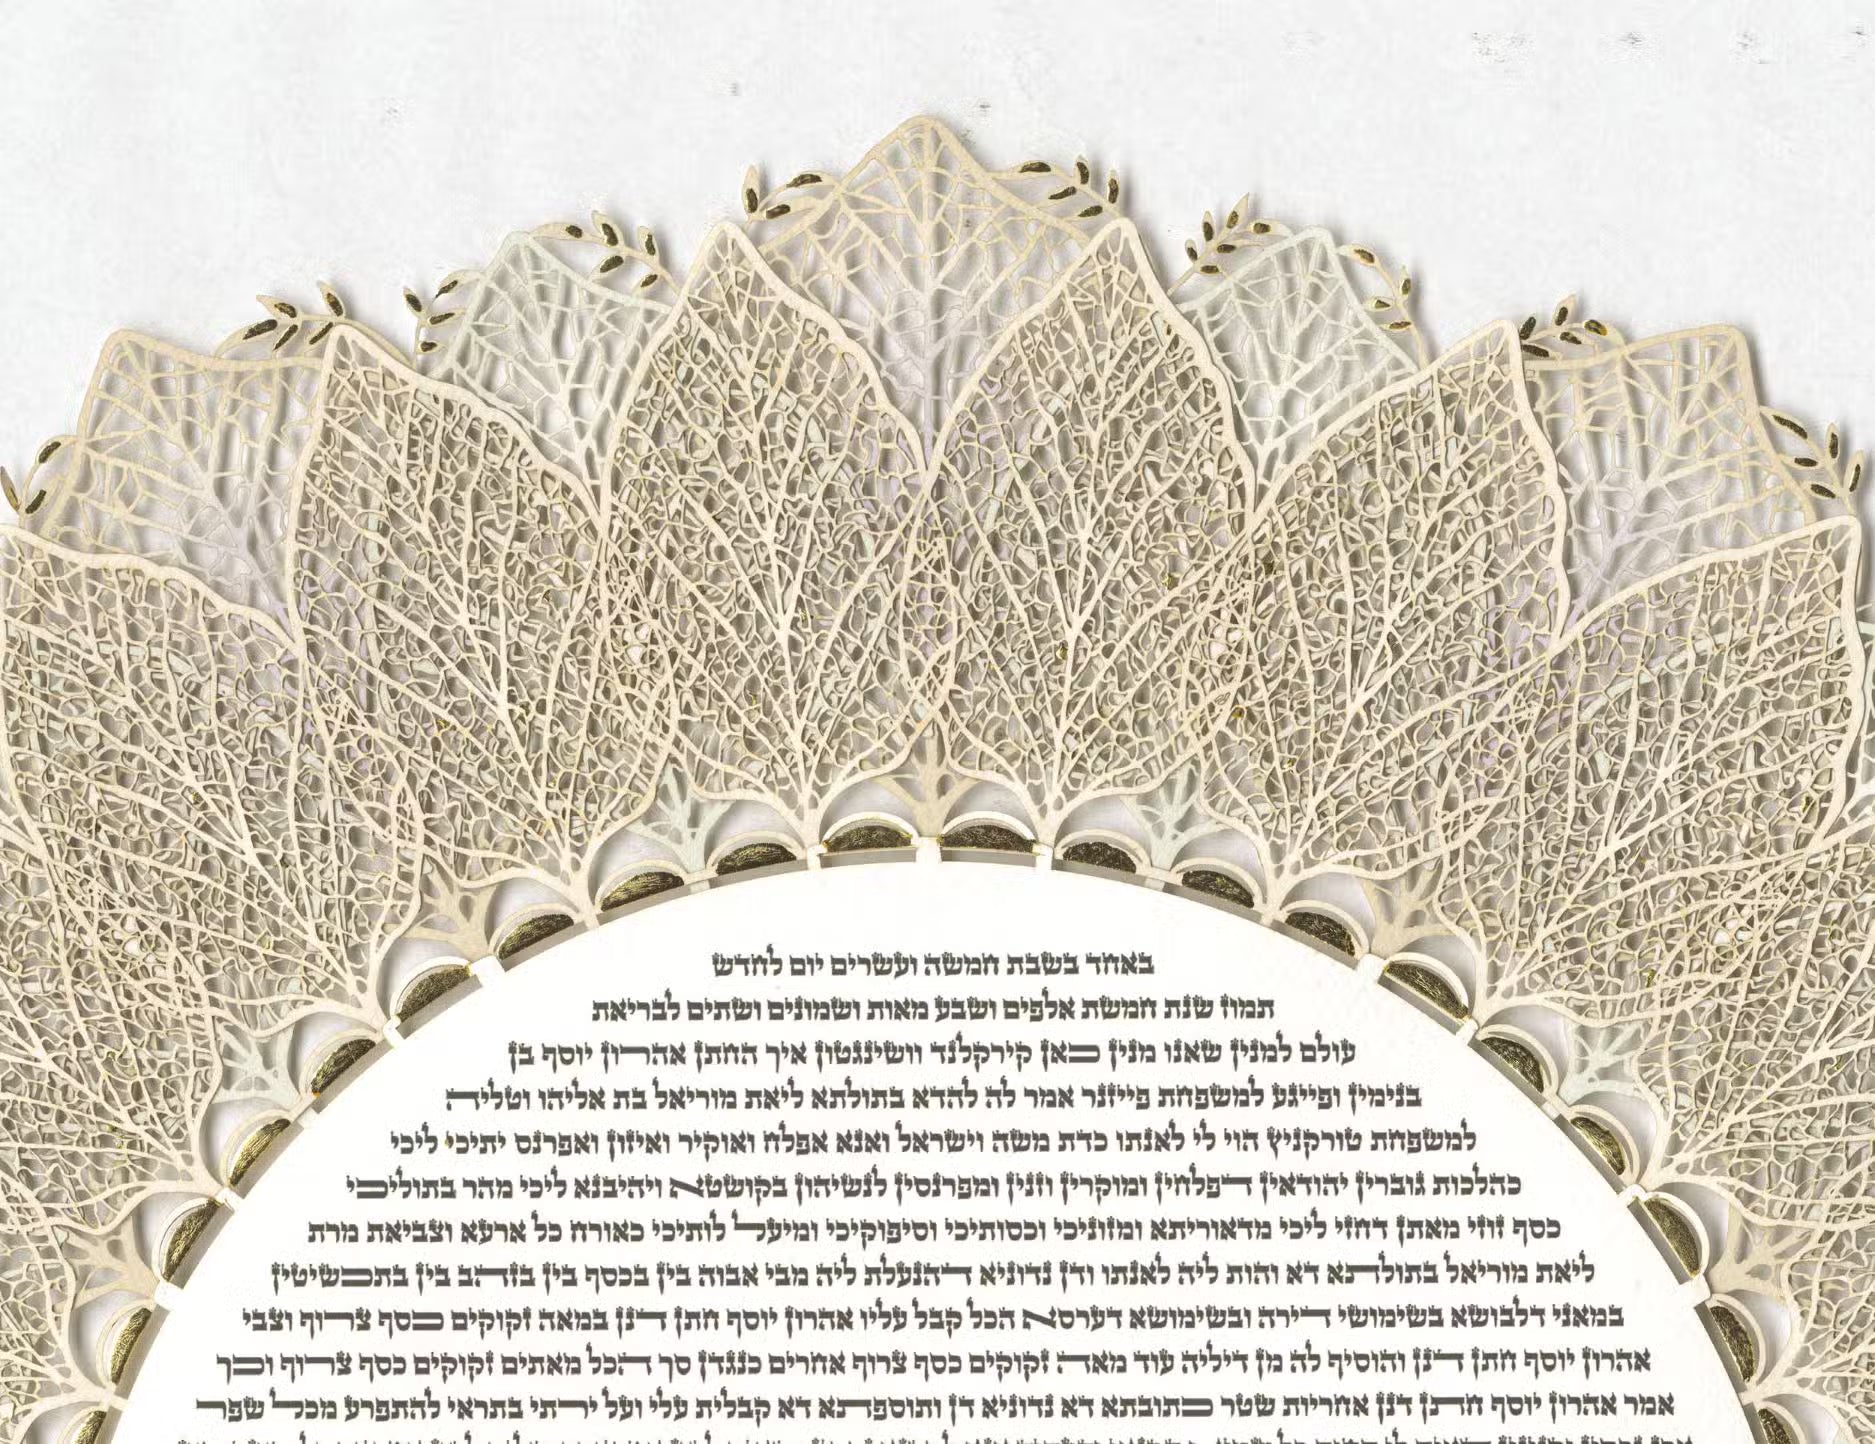 באחד בשבת חמשה ועשרים יום לחדש
תמוז שנת חמשת אלפים ושבע מאות ושמונים ושתים לבריאת
עולם למנין שאנו מנין כאן קירקלנד וושינגטון איך החתן אהרון יוסף בן
בנימין ופייגע למשפחת פייזנר אמר לה להדא בתולתא ליאת מוריאל בת אליהו וטליה
למשפחת טורקניץ הוי לי לאנתו כדת משה וישראל ואנא אפלח ואוקיר ואיזון ואפרנס יתיכי ליכי
כהלכות גוברין יהודאין דפלחין ומוקרין וזנין ומפרנסין לנשיהון בקושטא ויהיבנא ליכי מהר בתוליכי
כסף זוזי מאתן דחזי ליכי מדאוריתא ומזוניכי וכסותיכי וסיפוקיכי ומיעל לותיכי כאורח כל ארעא וצביאת מרת
ליאת מוריאל בתולתא דא והות ליה לאנתו ודן נדוניא דהנעלת ליה מבי אבוה בין בכסף בין בזהב בין בתכשיטין
במאני דלבושא בשימושי דירה ובשימושא דערסא הכל קבל עליו אהרון יוסף חתן דנן במאה זקוקים כסף צרוף וצבי
אהרון יוסף חתן דנן והוסיף לה מן דיליה עוד מאה זקוקים כסף צרוף אחרים כנגדן סך הכל מאתים זקוקים כסף צרוף וכך
אמר אהרון יוסף חתן דנן אחריות שטר כתובתא דא נדוניא דן ותוספתא דא קבלית עלי ועל ירתי בתראי להתפרע מכל שפר